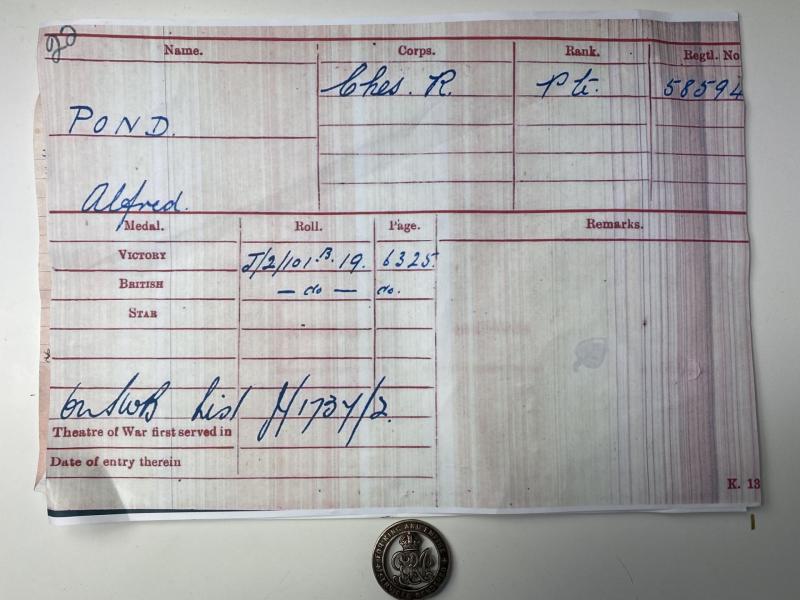 20
Name. Corps. Rank. Regtl. No
Ches. R. Pte. 58594
POND.
Alfred.
Medal. Roll. Page. Remarks.
VICTORY J/2/101 B 19. 6325.
BRITISH — do — do.
STAR
On SWB List J/1737/2.
Theatre of War first served in
Date of entry therein
K. 13
FOR KING AND EMPIRE
SERVICES RENDERED